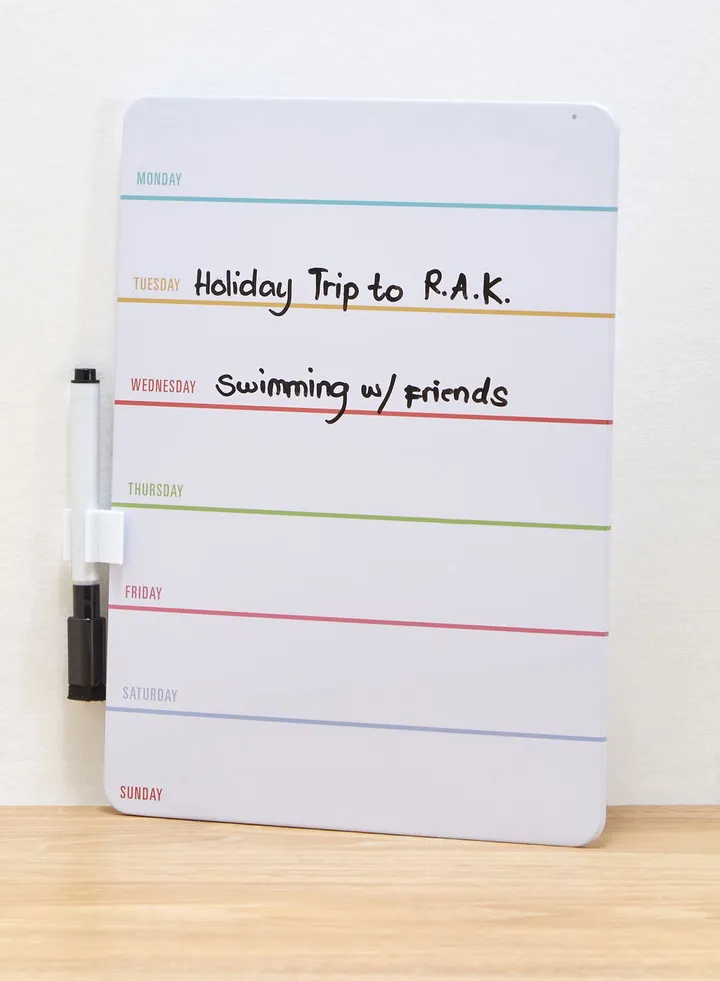 MONDAY
TUESDAY Holiday Trip to R.A.K.
WEDNESDAY Swimming w/ Friends
THURSDAY
FRIDAY
SATURDAY
SUNDAY